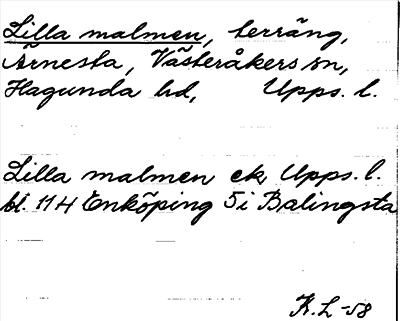 Lilla malmen, terräng,
Ärnesta, Västeråkers sn,
Hagunda hd, Upps. l.
Lilla malmen ek Upps. l.
bl. 114 Enköping 5i Balingsta
K.L-58